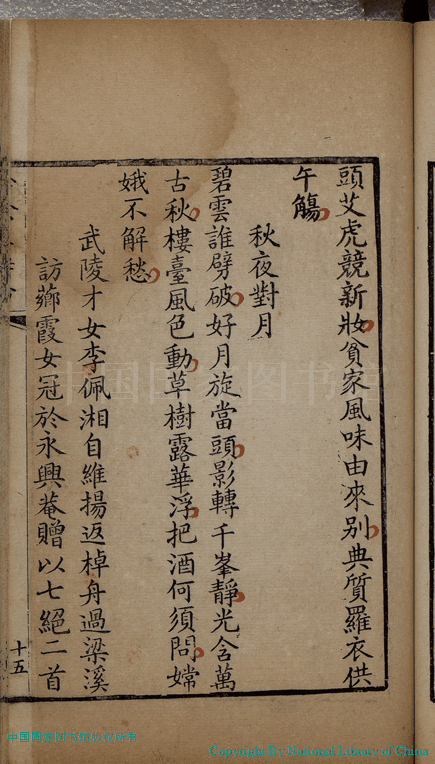 頭艾虎競新妝貧家風味由來别典質羅衣供
午觴
秋夜對月
碧雲誰劈破好月旋當頭影轉千峯靜光含萬
古秋樓臺風色動草樹露華浮把酒何須問嫦
娥不解愁
武陵才女李佩湘自維揚返棹舟過梁溪
訪薌霞女冠於永興菴贈以七絕二首
十五
中国国家图书馆
中国国家图书馆版权所有
Copyright By National Library of China